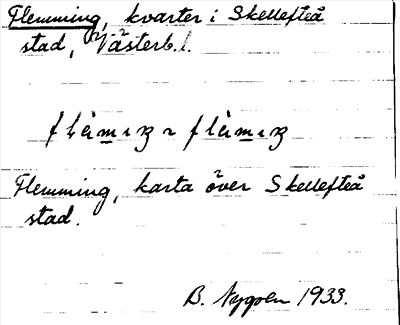 Flemming, kvarter i Skellefteå
stad, Västerb.l.
flèmıŋ ~ flèmıŋ
Flemming, karta över Skellefteå
stad.
B. Nygren 1933.